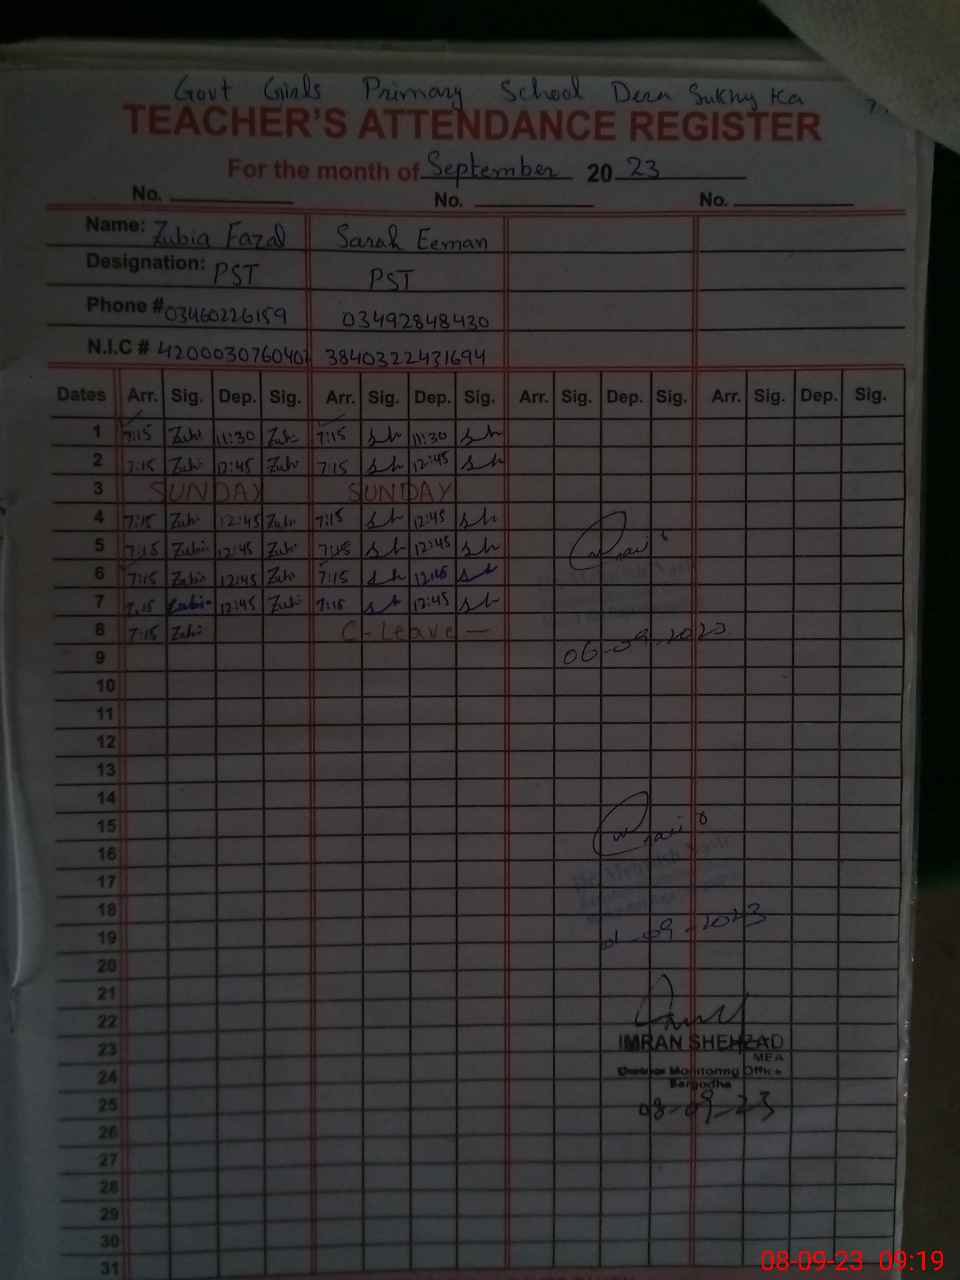 Govt Girls Primary School Dera Sukhy Ka
TEACHER'S ATTENDANCE REGISTER
For the month of September 20 23
No. No. No.
Name: Zubia Fazal Sarah Eeman
Designation: PST PST
Phone # 03460226159 03492848430
N.I.C # 3840322431694
Dates Arr. Sig. Dep. Sig. Arr. Sig. Dep. Sig. Arr. Sig. Dep. Sig. Arr. Sig. Dep. Sig.
1 7:15 Zubi 11:30 Zubi 7:15 11:30
2 7:15 Zubi 12:45 Zubi 7:15 12:45
3 SUNDAY SUNDAY
4 7:15 Zubi 12:45 Zubi 7:15 12:45
5 7:15 Zubi 12:45 Zubi 7:15 12:45
6 7:15 Zubi 12:45 Zubi 7:15 12:45
7 7:15 Zubi 12:45 Zubi 7:15 12:45
8 7:15 Zubi C-Leave —
9 06-09-2023
10
11
12
13
14
15
16
17
18
19 01-09-2023
20
21
22
23 IMRAN SHEHZAD
MEA
24 Monitoring Office
Sargodha
25 08-09-23
26
27
28
29
30
31
08-09-23 09:19